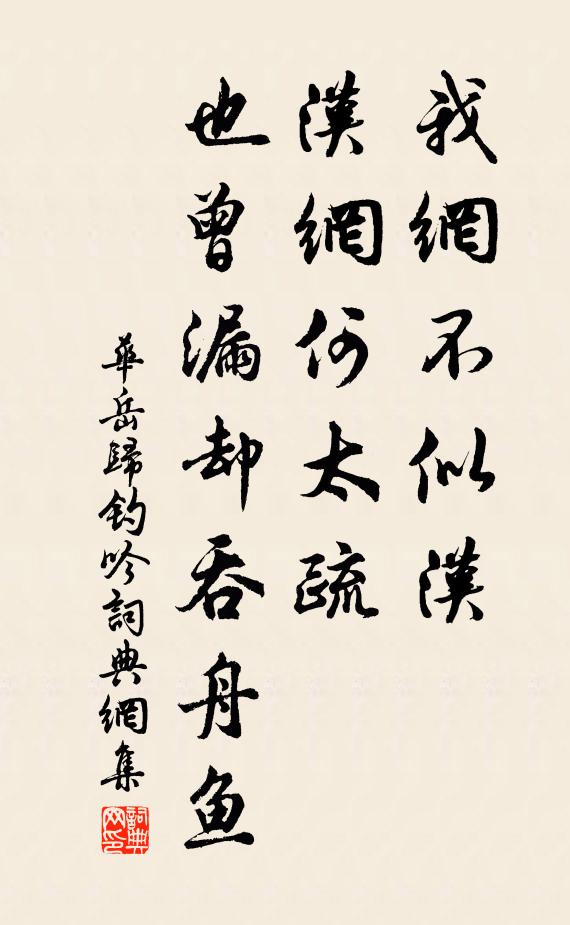 我網不似漢
漢網何太疏
也曾漏却吞舟魚
華岳歸釣吟詞典網集
詞典網印